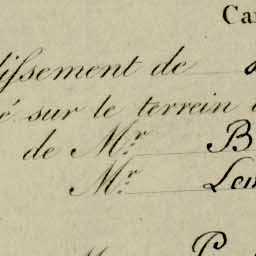 Ca
issement de
é sur le terrein
de Mr B
Mr Len